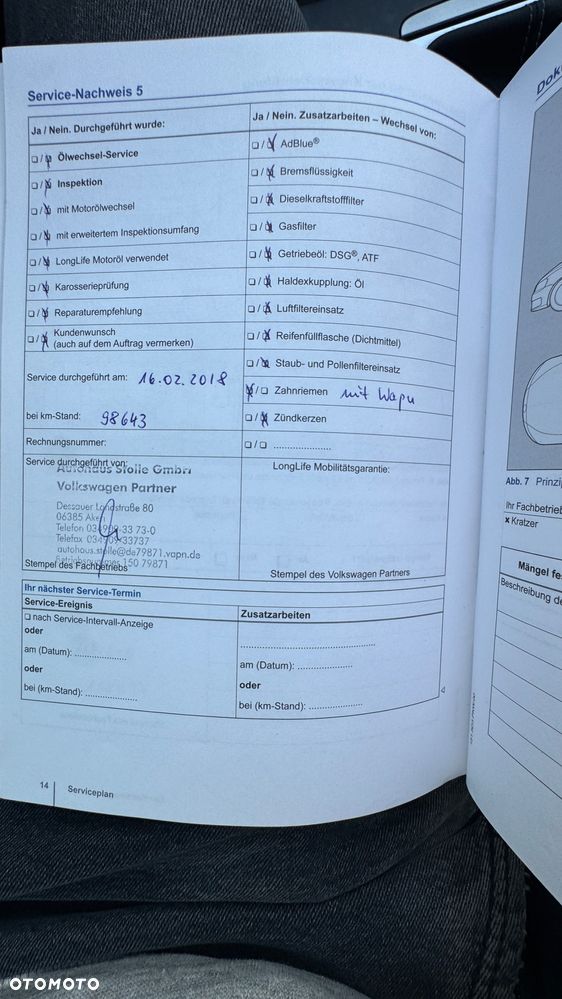 Service-Nachweis 5
Ja / Nein. Durchgeführt wurde:
☐ / ☒ Ölwechsel-Service
☐ / ☒ Inspektion
☐ / ☒ mit Motorölwechsel
☐ / ☒ mit erweitertem Inspektionsumfang
☐ / ☒ LongLife Motoröl verwendet
☐ / ☒ Karosserieprüfung
☐ / ☒ Reparaturempfehlung
☐ / ☒ Kundenwunsch
(auch auf dem Auftrag vermerken)
Service durchgeführt am: 16.02.2018
bei km-Stand: 98643
Rechnungsnummer:
Ja / Nein. Zusatzarbeiten – Wechsel von:
☐ / ☒ AdBlue®
☐ / ☒ Bremsflüssigkeit
☐ / ☒ Dieselkraftstofffilter
☐ / ☒ Gasfilter
☐ / ☒ Getriebeöl: DSG®, ATF
☐ / ☒ Haldexkupplung: Öl
☐ / ☒ Luftfiltereinsatz
☐ / ☒ Reifenfüllflasche (Dichtmittel)
☐ / ☒ Staub- und Pollenfiltereinsatz
☒ / ☐ Zahnriemen mit Wapu
☐ / ☒ Zündkerzen
☐ / ☐ .....................
Service durchgeführt von:
Autohaus Stolle GmbH
Volkswagen Partner
Dessauer Landstraße 80
06385
Telefon 33 73-0
Telefax 33737
autohaus.stolle@da79871.vapn.de
150 79871
Stempel des Fachbetriebs
LongLife Mobilitätsgarantie:
Stempel des Volkswagen Partners
Ihr nächster Service-Termin
Service-Ereignis
☐ nach Service-Intervall-Anzeige
oder
am (Datum): ...................
oder
bei (km-Stand): ...................
Zusatzarbeiten
.................................................
am (Datum): ...................
oder
bei (km-Stand): ...................
14 Serviceplan
Abb. 7
Ihr Fachbetrieb
x Kratzer
Mängel
Beschreibung
OTOMOTO